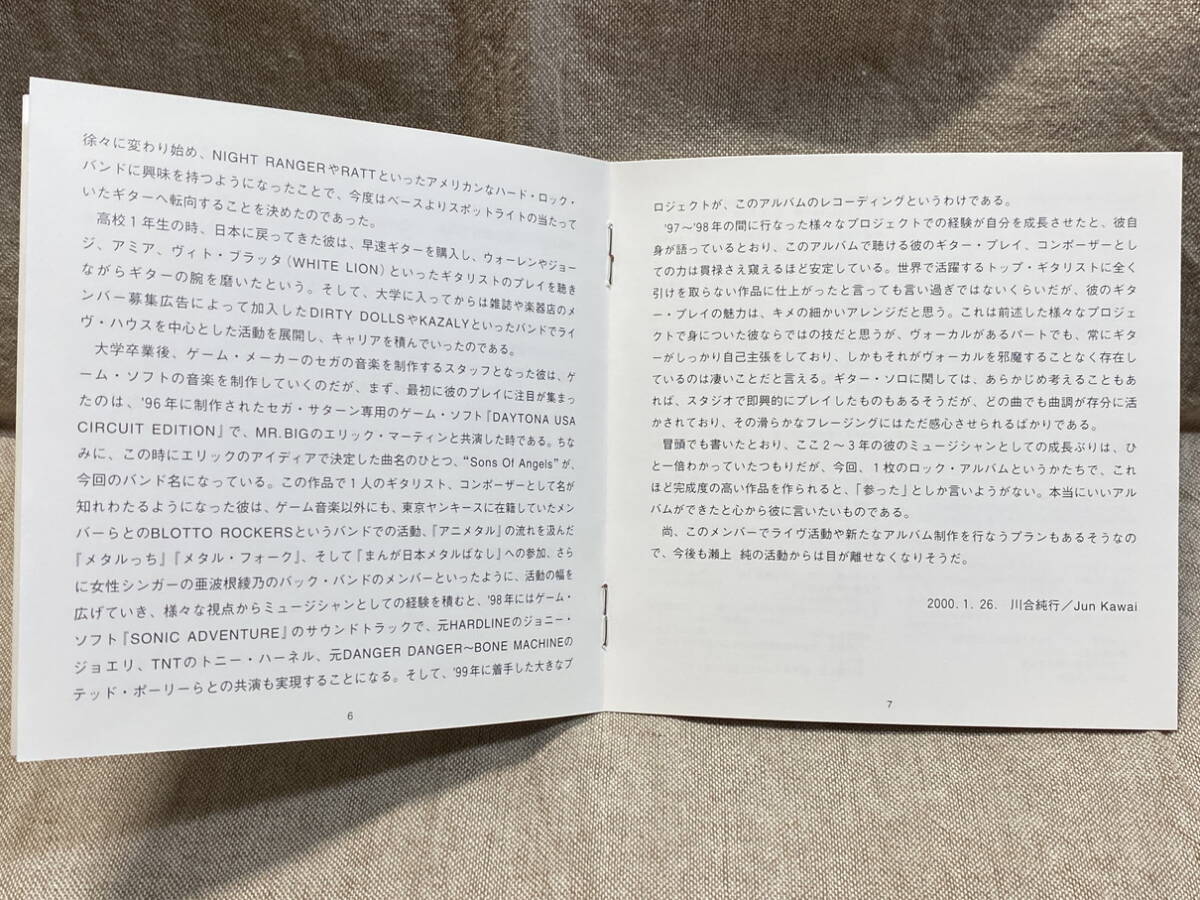 徐々に変わり始め、NIGHT RANGERやRATTといったアメリカンなハード・ロック・
バンドに興味を持つようになったことで、今度はベースよりスポットライトの当たって
いたギターへ転向することを決めたのであった。
　高校1年生の時、日本に戻ってきた彼は、早速ギターを購入し、ウォーレンやジョー
ジ、アミア、ヴィト・ブラッタ（WHITE LION）といったギタリストのプレイを聴き
ながらギターの腕を磨いたという。そして、大学に入ってからは雑誌や楽器店のメ
ンバー募集広告によって加入したDIRTY DOLLSやKAZALYといったバンドでライ
ヴ・ハウスを中心とした活動を展開し、キャリアを積んでいったのである。
　大学卒業後、ゲーム・メーカーのセガの音楽を制作するスタッフとなった彼は、ゲ
ーム・ソフトの音楽を制作していくのだが、まず、最初に彼のプレイに注目が集まっ
たのは、'96年に制作されたセガ・サターン専用のゲーム・ソフト『DAYTONA USA
CIRCUIT EDITION』で、MR.BIGのエリック・マーティンと共演した時である。ちな
みに、この時にエリックのアイディアで決定した曲名のひとつ、“Sons Of Angels”が、
今回のバンド名になっている。この作品で1人のギタリスト、コンポーザーとして名が
知れわたるようになった彼は、ゲーム音楽以外にも、東京ヤンキースに在籍していたメン
バーらとのBLOTTO ROCKERSというバンドでの活動、『アニメタル』の流れを汲んだ
『メタルっち』『メタル・フォーク』、そして『まんが日本メタルばなし』への参加、さら
に女性シンガーの亜波根綾乃のバック・バンドのメンバーといったように、活動の幅を
広げていき、様々な視点からミュージシャンとしての経験を積むと、'98年にはゲーム・
ソフト『SONIC ADVENTURE』のサウンドトラックで、元HARDLINEのジョニー・
ジョエリ、TNTのトニー・ハーネル、元DANGER DANGER〜BONE MACHINEの
テッド・ポーリーらとの共演も実現することになる。そして、'99年に着手した大きなプ
6
ロジェクトが、このアルバムのレコーディングというわけである。
　'97〜'98年の間に行なった様々なプロジェクトでの経験が自分を成長させたと、彼自
身が語っているとおり、このアルバムで聴ける彼のギター・プレイ、コンポーザーとし
ての力は貫禄さえ窺えるほど安定している。世界で活躍するトップ・ギタリストに全く
引けを取らない作品に仕上がったと言っても言い過ぎではないくらいだが、彼のギタ
ー・プレイの魅力は、キメの細かいアレンジだと思う。これは前述した様々なプロジェク
トで身についた彼ならではの技だと思うが、ヴォーカルがあるパートでも、常にギタ
ーがしっかり自己主張をしており、しかもそれがヴォーカルを邪魔することなく存在し
ているのは凄いことだと言える。ギター・ソロに関しては、あらかじめ考えることもあ
れば、スタジオで即興的にプレイしたものもあるそうだが、どの曲でも曲調が存分に活
かされており、その滑らかなフレージングにはただ感心させられるばかりである。
　冒頭でも書いたとおり、ここ2〜3年の彼のミュージシャンとしての成長ぶりは、ひ
と一倍わかっていたつもりだが、今回、1枚のロック・アルバムというかたちで、これ
ほど完成度の高い作品を作られると、「参った」としか言いようがない。本当にいいアル
バムができたと心から彼に言いたいものである。
　尚、このメンバーでライヴ活動や新たなアルバム制作を行なうプランもあるそうなの
で、今後も瀬上 純の活動からは目が離せなくなりそうだ。
2000. 1. 26.　川合純行／Jun Kawai
7